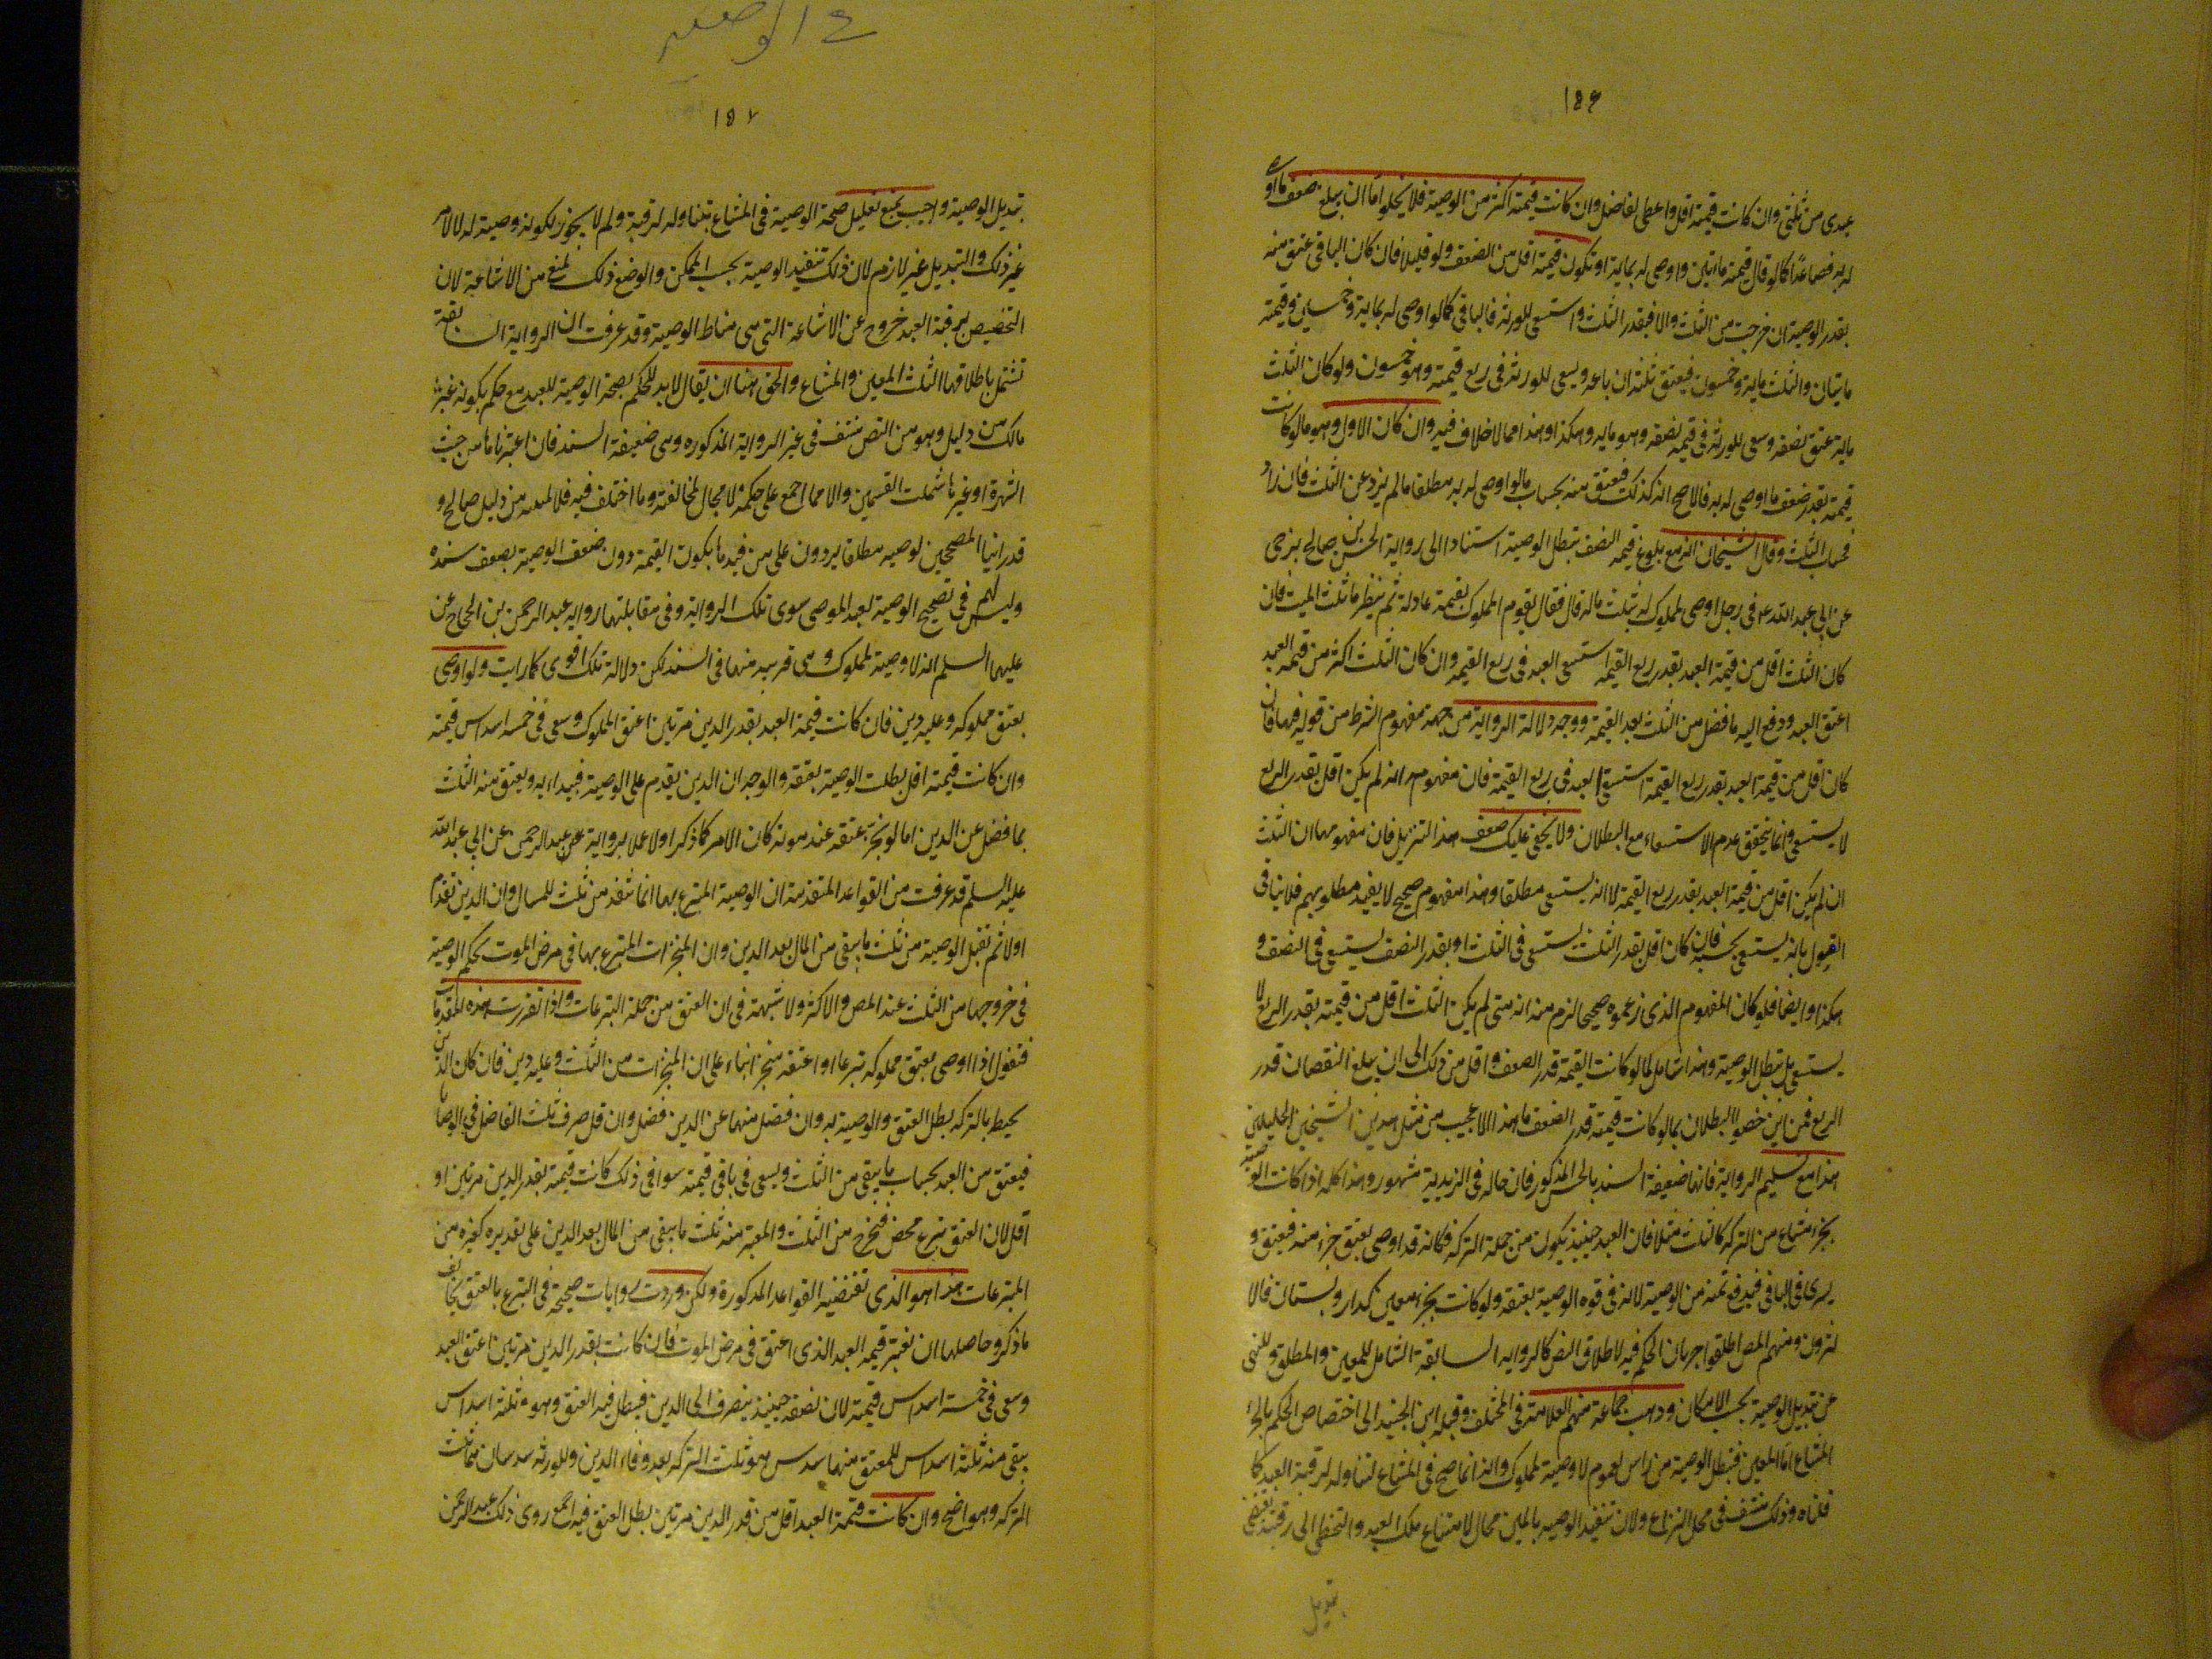 ١٥٦
عبدى من ثلثى وان كانت قيمته اقل واعطى الفاضل وان كانت قيمته اكثر من الوصية فلا يخلو اما ان يبلغ ضعف ما اوصى
له به فصاعدا كما لو قال قيمته مائتين واوصى له بماية او تكون قيمته اقل من الضعف ولو قليلا فان كان الباقى عتق منه
بقدر الوصية ان خرجت من الثلث والا فبقدر الثلث واستسعى للورثة فى الباقى كما لو اوصى له بماية وخمسين وقيمته
مايتان والثلث ماية وخمسون فيعتق ثلثة ارباعه ويسعى للورثة فى ربع قيمته وهو خمسون ولو كان الثلث
ماية عتق نصفه وسعى للورثة فى قيمة نصفه وهو ماية وهكذا وهذا مما لا خلاف فيه وان كان الاول وهو ما لو كانت
قيمته بقدر ضعف ما اوصى له به فالاصح انه كذلك فيعتق منه بحساب ما اوصى له به مطلقا ما لم يزد عن الثلث فان زاد
فبحساب الثلث وقال الشيخان انه مع بلوغ قيمة الضعف تبطل الوصية استنادا الى رواية الحسن بن صالح بن حى
عن ابى عبد الله ع فى رجل اوصى لمملوك له بثلث ماله قال فقال يقوم المملوك بقيمة عادلة ثم ينظر ما ثلث الميت فان
كان الثلث اقل من قيمة العبد بقدر ربع القيمة استسعى العبد فى ربع القيمة وان كان الثلث اكثر من قيمة العبد
اعتق العبد ودفع اليه ما فضل من الثلث بعد القيمة ووجه دلالة الرواية من جهة مفهوم الشرط من قوله فيها فان
كان اقل من قيمة العبد بقدر ربع القيمة استسعى العبد فى ربع القيمة فان مفهومه انه لم يكن اقل بقدر الربع
لا يستسعى وانما يتحقق عدم الاستسعاء مع البطلان ولا يخفى عليك ضعف هذا التنزيل فان مفهومها ان الثلث
ان لم يكن اقل من قيمة العبد بقدر ربع القيمة لا انه يستسعى مطلقا وهذا مفهوم صحيح لا يفيد مطلوبهم فلا ينافى
القول بانه يستسعى بحسبه فان كان اقل بقدر الثلث يستسعى فى الثلث او بقدر النصف يستسعى فى النصف و
هكذا وايضا فلو كان المفهوم الذى زعموه صحيحا لزم منه انه متى لم يكن الثلث اقل من قيمته بقدر الربع لا
يستسعى بل تبطل الوصية وهذا شامل لما لو كانت القيمة قدر الضعف واقل من ذلك الى ان يبلغ النقصان قدر
الربع فمن اين خصوا البطلان بما لو كانت قيمته قدر الضعف ما هذا الا عجيب من مثل هذين الشيخين الجليلين
هذا مع تسليم الرواية فانها ضعيفة السند بالحسن المذكور فان حاله فى الزيدية مشهور وهذا كله اذا كانت الوصية
بجزء مشاع من التركة كالثلث مثلا فان العبد حينئذ يكون من جملة التركة فكانه قد اوصى بعتق جزء منه فيعتق و
يسرى فى الباقى فيدفع ثمنه من الوصية لانه فى قوة الوصية بعتقه ولو كانت بجزء معين كدار وبستان فالا
كثرون ومنهم المص اطلقوا جريان الحكم فيه لاطلاق النص كالرواية السابقة الشامل للمعين والمطلق وللنهى
عن تبديل الوصية بحسب الامكان وذهب جماعة منهم العلامة فى المختلف وقبله ابن الجنيد الى اختصاص الحكم بالجزء
المشاع اما المعين فتبطل الوصية من راس لعموم لا وصية لمملوك وانه انما صح فى المشاع لتناوله لرقبة العبد كما
قلناه وذلك منتف فى محل النزاع ولان تنفيذ الوصية بالمعين محال لامتناع ملك العبد والتخطى الى رقبته يقتضى
تبديل
ع الوصية
١٥٧
تبديل الوصية واجيب بمنع تعليل صحة الوصية فى المشاع بتناوله لرقبته ولم لا يجوز لكونه وصية له لا لامر
غير ذلك والتبديل غير لازم لان ذلك تنفيذ الوصية بحسب الممكن والوضع ذلك لمنع من الاشاعة لان
التخصيص برقبة العبد خروج عن الاشاعة التى هى مناط الوصية وقد عرفت ان الرواية السابقة
تشتمل باطلاقها الثلث المعين والمشاع والحق هنا ان يقال لا بد للحكم بصحة الوصية للعبد مع حكم بكونه غير
مالك من دليل وهو من النص منتف فى غير الرواية المذكورة وهى ضعيفة السند فان اعتبرناها من حيث
الشهرة او غيرها شملت القسمين والا فما اجمع على حكمه لا مجال لمخالفته وما اختلف فيه فلا بد من دليل صالح و
قدر اينا المصححين لوصيته مطلقا يردون على من قيد ما بكون القيمة دون ضعف الوصية بضعف سنده
وليس لهم فى تصحيح الوصية لعبد الموصى سوى تلك الرواية وفى مقابلتها رواية عبد الرحمن بن الحجاج عن
عليهما السلم انه لا وصية لمملوك وهى قريبة منها فى السند لكن دلالة تلك اقوى كما رايت ولو اوصى
بعتق مملوكه وعليه دين فان كانت قيمة العبد بقدر الدين مرتين اعتق المملوك وسعى فى خمسة اسداس قيمته
وان كانت قيمته اقل بطلت الوصية بعتقه والوجه ان الدين يقدم على الوصية فيبداء به ويعتق منه الثلث
بما فضل عن الدين اما لو نجز عتقه عند موته كان الامر كما ذكر اولا عملا برواية عبد الرحمن عن ابى عبد الله
عليه السلم قد عرفت من القواعد المتقدمة ان الوصية المتبرع بها انما تنفذ من ثلث المال وان الدين يقدم
اولا ثم تقبل الوصية من ثلث ما يبقى من المال بعد الدين وان المنجزات المتبرع بها فى مرض الموت بحكم الوصية
فى خروجها من الثلث عند المص والاكثر ولا شبهة فى ان العتق من جملة التبرعات واذا تقررت هذه المقدمات
فنقول اذا اوصى بعتق مملوكه تبرعا او اعتقه منجزا بناء على ان المنجزات من الثلث وعليه دين فان كان الدين
يحيط بالتركة بطل العتق والوصية به وان فضل منها عن الدين فضل وان قل صرف ثلث الفاضل فى الوصايا
فيعتق من العبد بحساب ما يبقى من الثلث ويسعى فى باقى قيمته سوا فى ذلك كانت قيمته بقدر الدين مرتين او
اقل لان العتق تبرع محض فيخرج من الثلث والمعتبر منه ثلث ما يبقى من المال بعد الدين على تقديره كغيره من
المتبرعات هذا هو الذى تقتضيه القواعد المذكورة ولكن وردت روايات صحيحة فى التبرع بالعتق يخالف
ما ذكر وحاصلها ان نعتبر قيمة العبد الذى اعتق فى مرض الموت فان كانت بقدر الدين مرتين اعتق العبد
وسعى فى خمسة اسداس قيمته لان نصفه حينئذ ينصرف الى الدين فيبطل فيه العتق وهو ثلثة اسداس
يبقى منه ثلثة اسداس للمعتق منها سدس هو ثلث التركة بعد وفاء الدين وللورثة سدسان ثلثا
التركة وهو واضح وان كانت قيمة العبد اقل من قدر الدين مرتين بطل العتق فيه اجمع روى ذلك عبد الرحمن